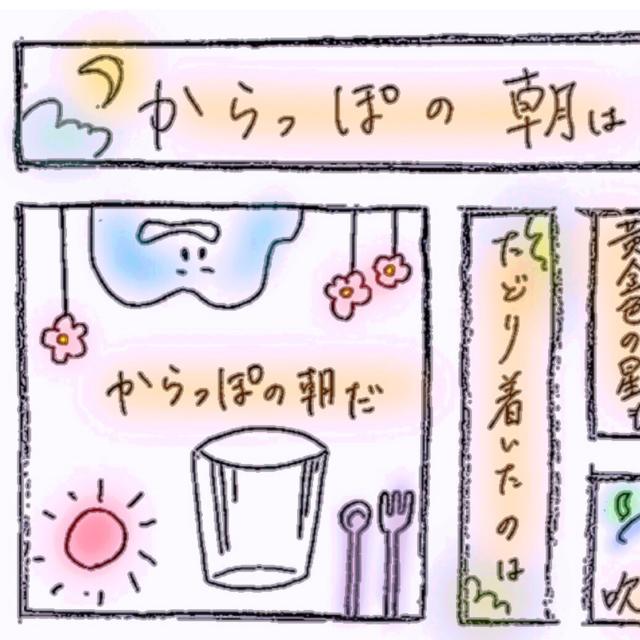 からっぽの朝は
からっぽの朝だ
たどり着いたのは
黄金色の星も
吹